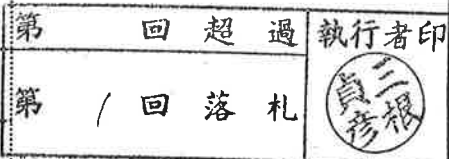 第 回超過 執行者印
第 1 回落札
三根
貞彦